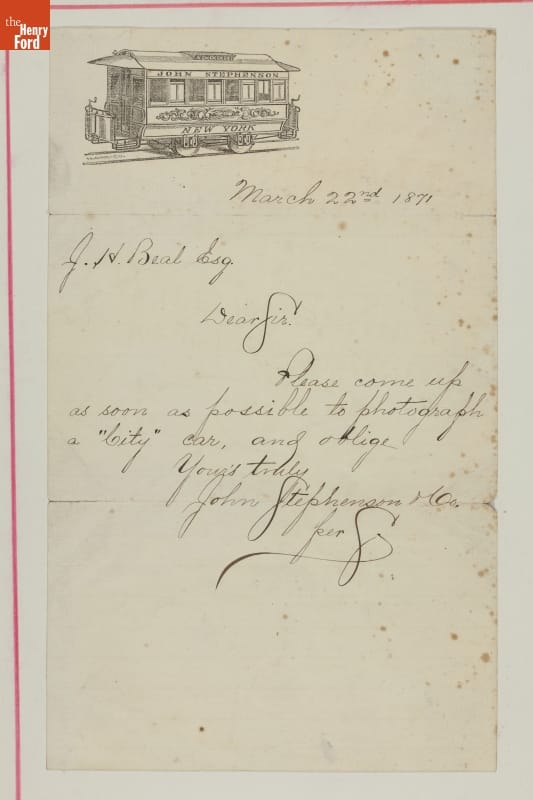 the
Henry
Ford
JOHN STEPHENSON
NEW YORK
March 22nd 1871
J. H. Beal Esq.
Dear Sir.
Please come up
as soon as possible to photograph
a "City" car, and oblige
Yours truly
John Stephenson & Co.
per S.